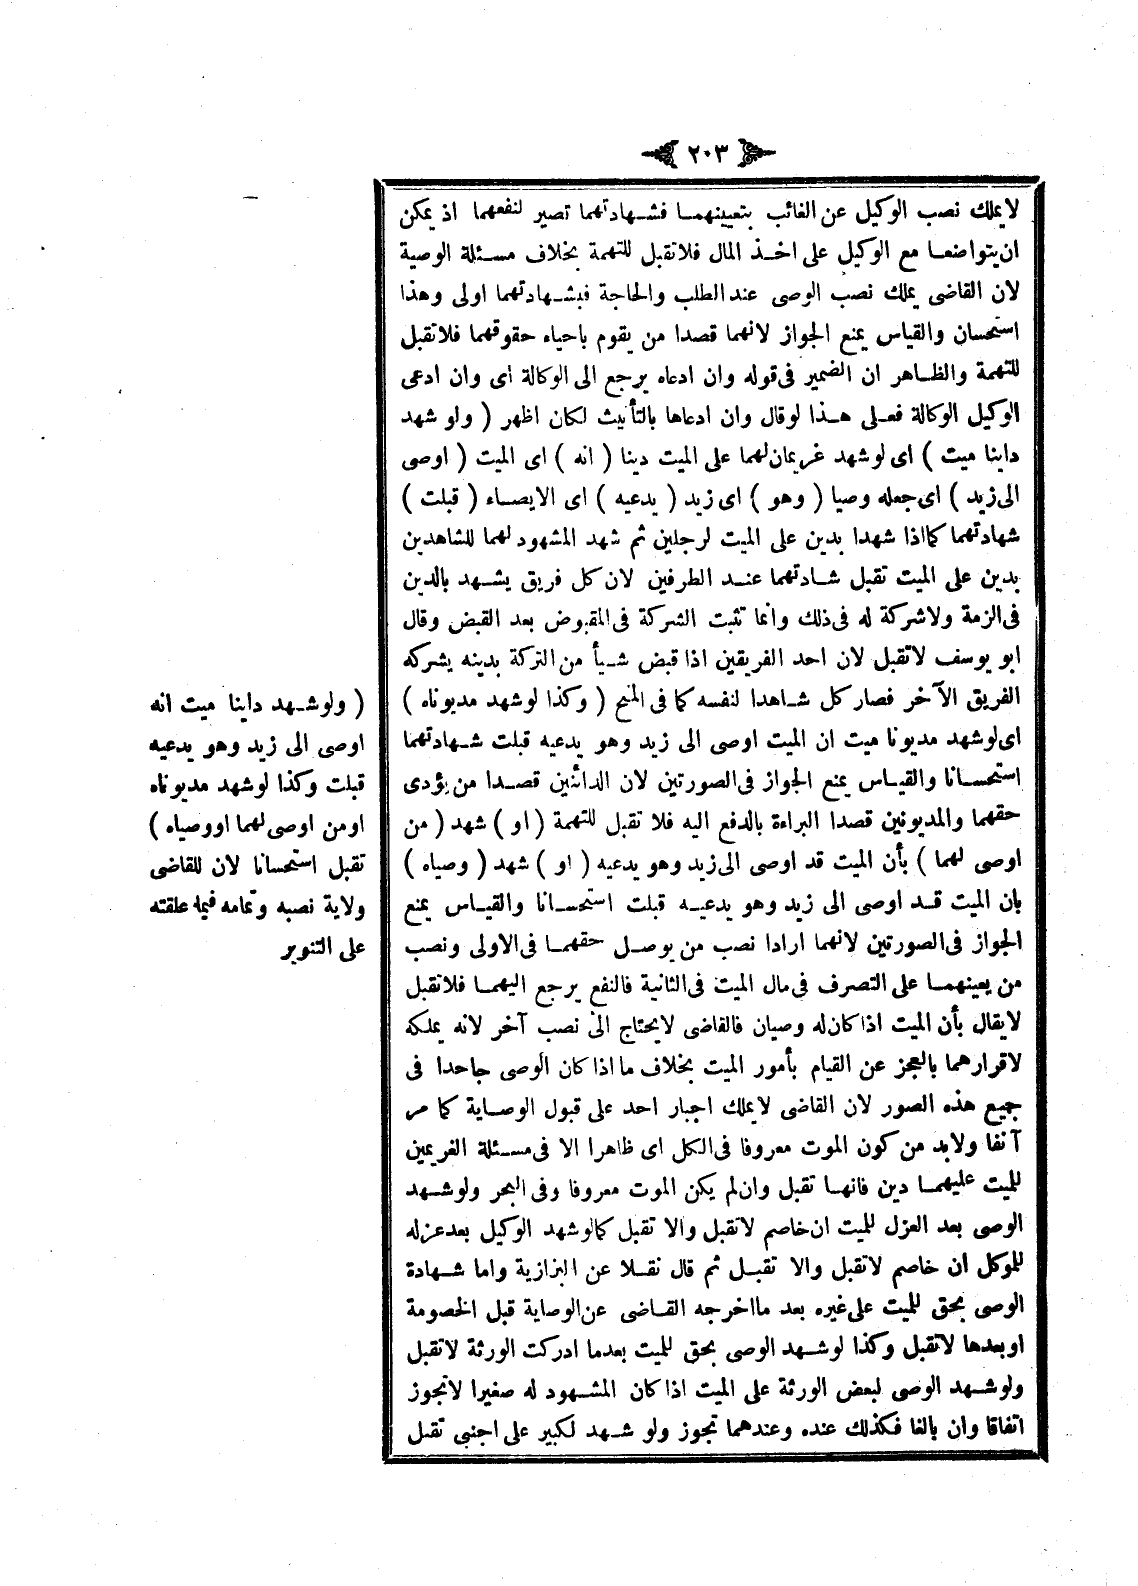 ٢٠٣
لايملك نصب الوكيل عن الغائب بتعيينهما فشهادتهما تصير لنفعهما اذ يمكن
ان يتواضعا مع الوكيل على اخذ المال فلاتقبل للتهمة بخلاف مسئلة الوصية
لان القاضى يملك نصب الوصى عند الطلب والحاجة فبشهادتهما اولى وهذا
استحسان والقياس يمنع الجواز لانهما قصدا من يقوم باحياء حقوقهما فلاتقبل
للتهمة والظاهر ان الضمير فى قوله وان ادعاه يرجع الى الوكالة اى وان ادعى
الوكيل الوكالة فعلى هذا لوقال وان ادعاها بالتأنيث لكان اظهر ( ولو شهد
داينا ميت ) اى لو شهد غريمان لهما على الميت دينا ( انه ) اى الميت ( اوصى
الى زيد ) اى جعله وصيا ( وهو ) اى زيد ( يدعيه ) اى الايصاء ( قبلت )
شهادتهما كما اذا شهدا بدين على الميت لرجلين ثم شهد المشهود لهما للشاهدين
بدين على الميت تقبل شادتهما عند الطرفين لان كل فريق يشهد بالدين
فى الزمة ولاشركة له فى ذلك وانما تثبت الشركة فى المقبوض بعد القبض وقال
ابو يوسف لاتقبل لان احد الفريقين اذا قبض شيأ من التركة بدينه يشركه
الفريق الآخر فصار كل شاهدا لنفسه كما فى المنح ( وكذا لوشهد مديوناه )
اى لوشهد مديونا ميت ان الميت اوصى الى زيد وهو يدعيه قبلت شهادتهما
استحسانا والقياس يمنع الجواز فى الصورتين لان الدائنين قصدا من يؤدى
حقهما والمديونين قصدا البراءة بالدفع اليه فلا تقبل للتهمة ( او ) شهد ( من
اوصى لهما ) بأن الميت قد اوصى الى زيد وهو يدعيه ( او ) شهد ( وصياه )
بان الميت قد اوصى الى زيد وهو يدعيه قبلت استحسانا والقياس يمنع
الجواز فى الصورتين لانهما ارادا نصب من يوصل حقهما فى الاولى ونصب
من يعينهما على التصرف فى مال الميت فى الثانية فالنفع يرجع اليهما فلاتقبل
لايقال بأن الميت اذا كان له وصيان فالقاضى لايحتاج الى نصب آخر لانه يملكه
لاقرارهما بالعجز عن القيام بأمور الميت بخلاف ما اذا كان الوصى جاحدا فى
جميع هذه الصور لان القاضى لايملك اجبار احد على قبول الوصاية كما مر
آنفا ولابد من كون الموت معروفا فى الكل اى ظاهرا الا فى مسئلة الغريمين
للميت عليهما دين فانها تقبل وان لم يكن الموت معروفا وفى البحر ولوشهد
الوصى بعد العزل للميت ان خاصم لاتقبل والا تقبل كما لوشهد الوكيل بعد عزله
للموكل ان خاصم لاتقبل والا تقبل ثم قال نقلا عن البزازية واما شهادة
الوصى بحق للميت على غيره بعد ما اخرجه القاضى عن الوصاية قبل الخصومة
اوبعدها لاتقبل وكذا لوشهد الوصى بحق للميت بعدما ادركت الورثة لاتقبل
ولوشهد الوصى لبعض الورثة على الميت اذا كان المشهود له صغيرا لاتجوز
اتفاقا وان بالغا فكذلك عنده وعندهما تجوز ولو شهد لكبير على اجنبى تقبل
( ولوشهد داينا ميت انه
اوصى الى زيد وهو يدعيه
قبلت وكذا لوشهد مديوناه
اومن اوصى لهما اووصياه )
تقبل استحسانا لان للقاضى
ولاية نصبه وتمامه فيما علقته
على التنوير